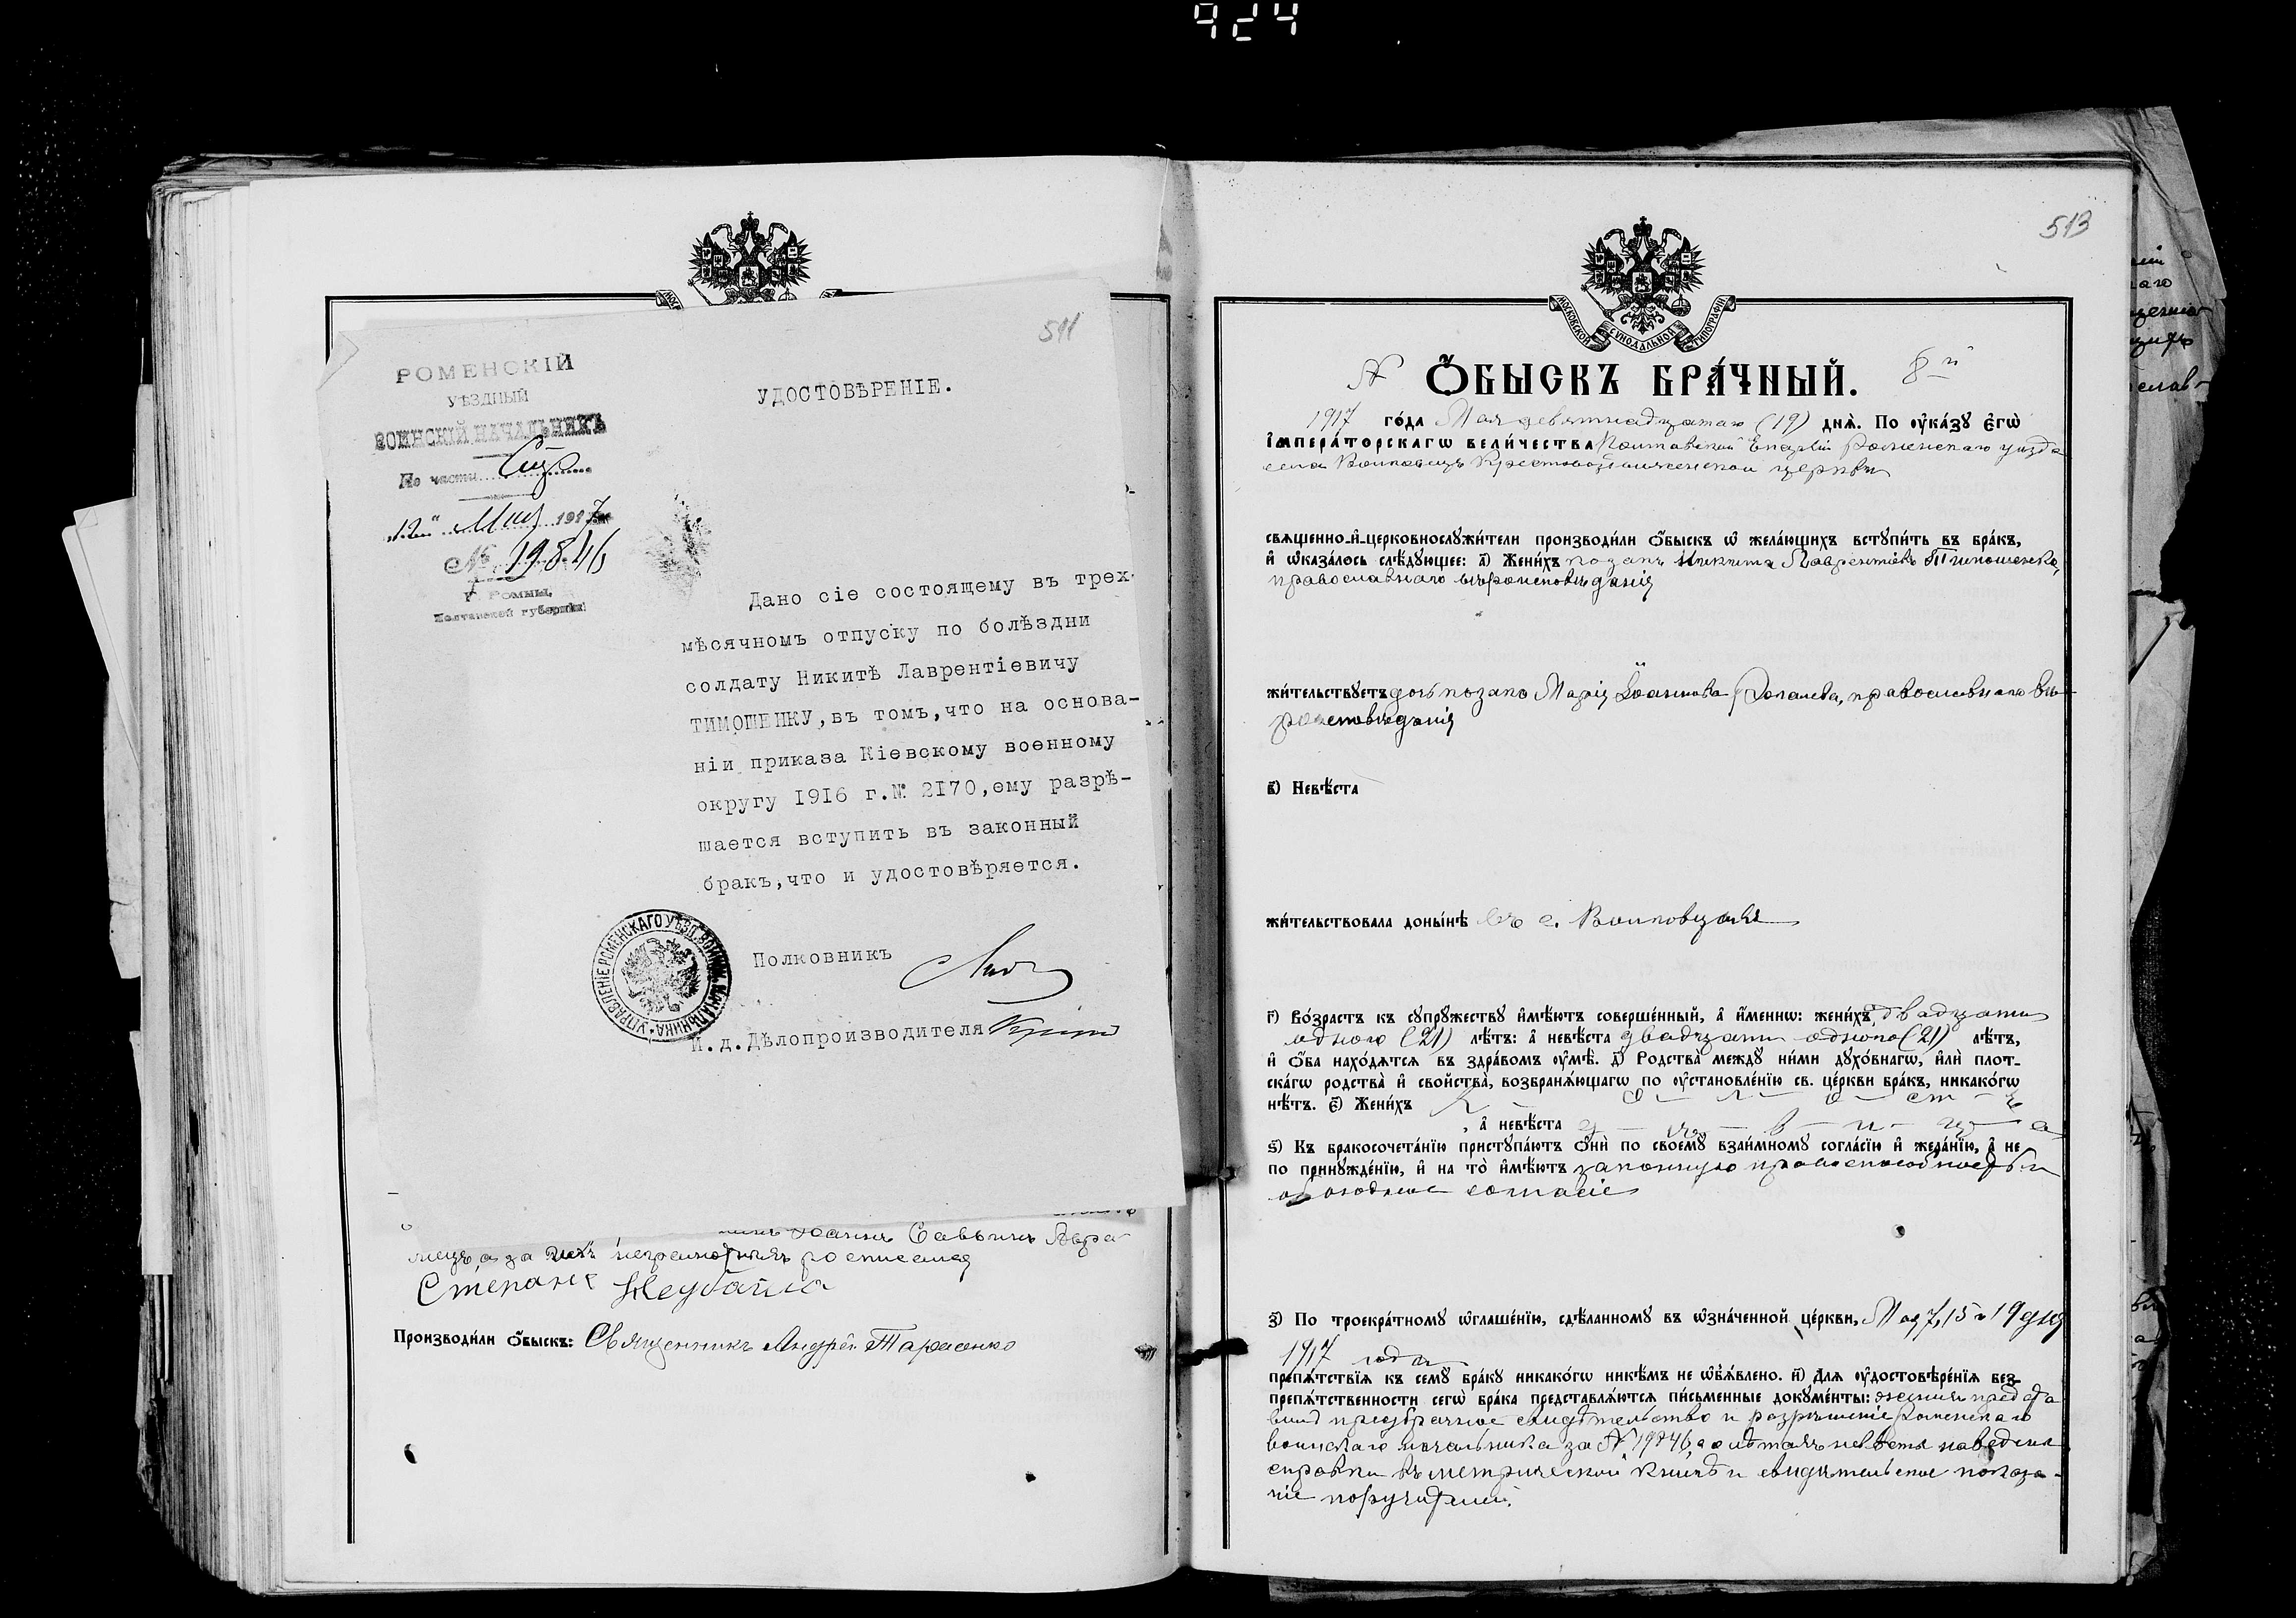 924
511
РОМЕНСКІЙ
УѢЗДНЫЙ
ВОИНСКІЙ НАЧАЛЬНИКЪ
По части
„12“ Мая 1917
№ 19846
Г. РОМНЫ,
Полтавской губерніи
УДОСТОВѢРЕНІЕ.
Дано сіе состоящему въ трех-
мѣсячномъ отпуску по болѣздни
солдату Никитѣ Лаврентіевичу
ТИМОШЕНКУ, въ томъ, что на основа-
ніи приказа Кіевскому военному
округу 1916 г. № 2170, ему разрѣ-
шается вступить въ законный
бракъ, что и удостовѣряется.
Полковникъ
И. д. Дѣлопроизводителя
УПРАВЛЕНІЕ РОМЕНСКАГО УѢЗД. ВОИНСК. НАЧАЛЬНИКА
Іоаннъ Саввинъ
а за них неграмотныхъ росписался
Степанъ
Производи́ли о҆́быскъ: Священникъ Андрей Тарасенко
513
МОСКОВСКОЙ СѴНОДАЛЬНОЙ ТИПОГРАФІИ
№ Ѻ҆́БЫСКЪ БРА́ЧНЫЙ. 8й
1917 го́да Мая девятнадцатаго (19) дня̀. По ᲂу҆ка́зꙋ є҆гѡ̀
і҆мпера́торскагѡ вели́чества Полтавской Епархіи Роменскаго уѣзда
села Волковецъ Крестовоздвиженской церкви
свѧщенно-и҆-церковнослꙋжи́тели производи́ли ѻ҆́быскъ ѡ҆ жела́ющихъ встꙋпи́ть въ бра́къ,
и҆ ѡ҆каза́лось слѣ́дꙋющее: а҃) Жени́хъ козакъ Никита Лаврентіевъ Тимошенко,
православнаго вѣроисповѣданія
жи́тельствꙋетъ дочь козака Марія Іоаннова Ропалева, православнаго вѣ-
роисповѣданія
в҃) Невѣ́ста
жи́тельствовала доны́нѣ въ с. Волковцахъ
г҃) Во́зрастъ къ сꙋпрꙋ́жествꙋ и҆мѣ́ютъ соверше́нный, а҆ и҆́меннѡ: жени́хъ двадцати
одного (21) лѣ́тъ: а҆ невѣ́ста двадцати одного (21) лѣ́тъ,
и҆ ѻ҆́ба нахо́дѧтсѧ въ здра́вомъ ᲂу҆мѣ̀. д҃) Родства̀ междꙋ̀ ни́ми дꙋхо́внагѡ, и҆лѝ плот-
ска́гѡ родства̀ и҆ свойства̀, возбранѧ́ющагѡ по ᲂу҆становле́нїю св. це́ркви бра́къ, никако́гѡ
нѣ́тъ. є҃) Жени́хъ х - о - л - о - ст - ъ
, а҆ невѣ́ста д - ѣ - в - и - ц - а
ѕ҃) Къ бракосочета́нїю пристꙋпа́ютъ ѻ҆нѝ по своемꙋ̀ взаи́мномꙋ согла́сїю и҆ жела́нїю, а҆ не
по принꙋжде́нїю, и҆ на то̀ и҆мѣ́ютъ законную правоспособность и
обоюдное согласіе
з҃) По троекра́тномꙋ ѡ҆глаше́нїю, сдѣ́ланномꙋ въ ѡ҆зна́ченной це́ркви, Мая 7, 15 и 19 дня
1917 года
препѧ́тствїѧ къ семꙋ̀ бра́кꙋ никако́гѡ никѣ́мъ не ѡ҆б̾ѧ́влено. и҃) Длѧ ᲂу҆достовѣре́нїѧ без-
препѧ́тственности сегѡ̀ бра́ка представлѧ́ютсѧ пи́сьменные докꙋме́нты: женихъ предста
вилъ предбрачное свидѣтельство и разрѣшеніе Роменскаго
воинскаго начальника за № 19846, а о лѣтахъ невѣсты наведена
справка въ метрической книгѣ и свидѣтельское показа-
ніе поручителей.